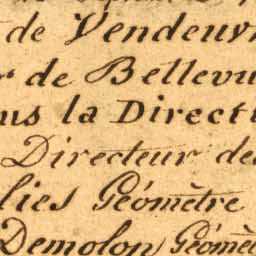 de Vendeuv
r de Bellevu
us la Direct
Directeur de
lies Géomètre
Demolon Géomè